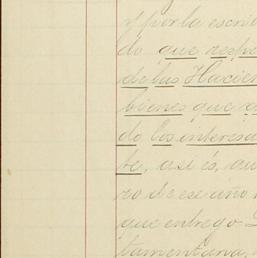 y por la escri
do que respe
de las Hacien
bienes que q
do los interesa
te, así és, qu
ro de ese año
que entregó
tamentaria,